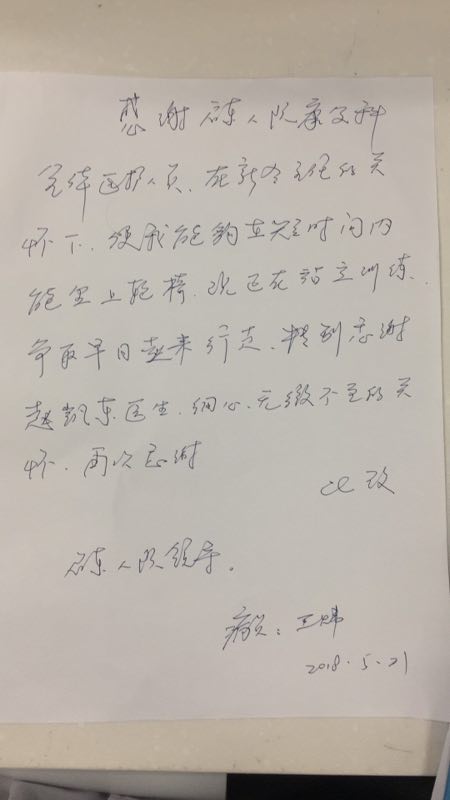 感谢 人民康复科
全体医护人员.在新主任的关
怀下.使我能夠在短时间内
能坐上轮椅.现正在站立训练.
争取早日起来行走.特别感谢
赵凯东医生.细心.无微不至的关
怀.再次感谢
此致
人民领导.
病员:王
2018.5.21